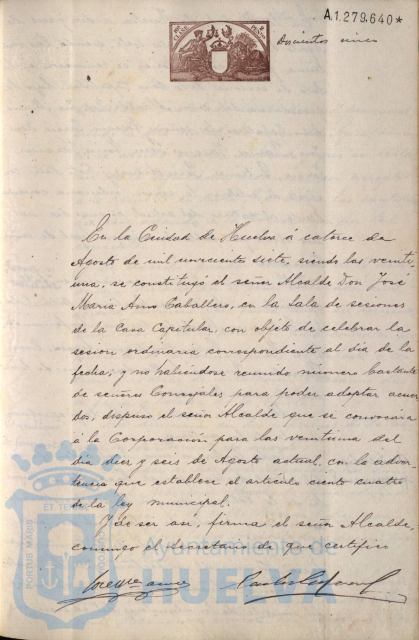 A.1.279.640*
Doscientos cinco
En la Ciudad de Huelva á catorce de
Agosto de mil novecientos siete, siendo las veinti-
una, se constituyó el señor Alcalde Don José
Maria Amo Caballero, en la Sala de sesiones
de la Casa Capitular, con objeto de celebrar la
sesion ordinaria correspondiente al dia de la
fecha; y no habiendose reunido número bastante
de señores Concejales para poder adoptar acuer-
dos, dispuso el señor Alcalde que se convocára
á la Corporacion para las veintiuna del
dia diez y seis de Agosto actual, con la adver-
tencia que establece el artículo ciento cuatro
de la ley municipal.
Y de ser así, firma el señor Alcalde,
conmigo el Secretario de que certifico
PORTUS MARIS
ET TERR
Ayuntamiento de
HUELVA